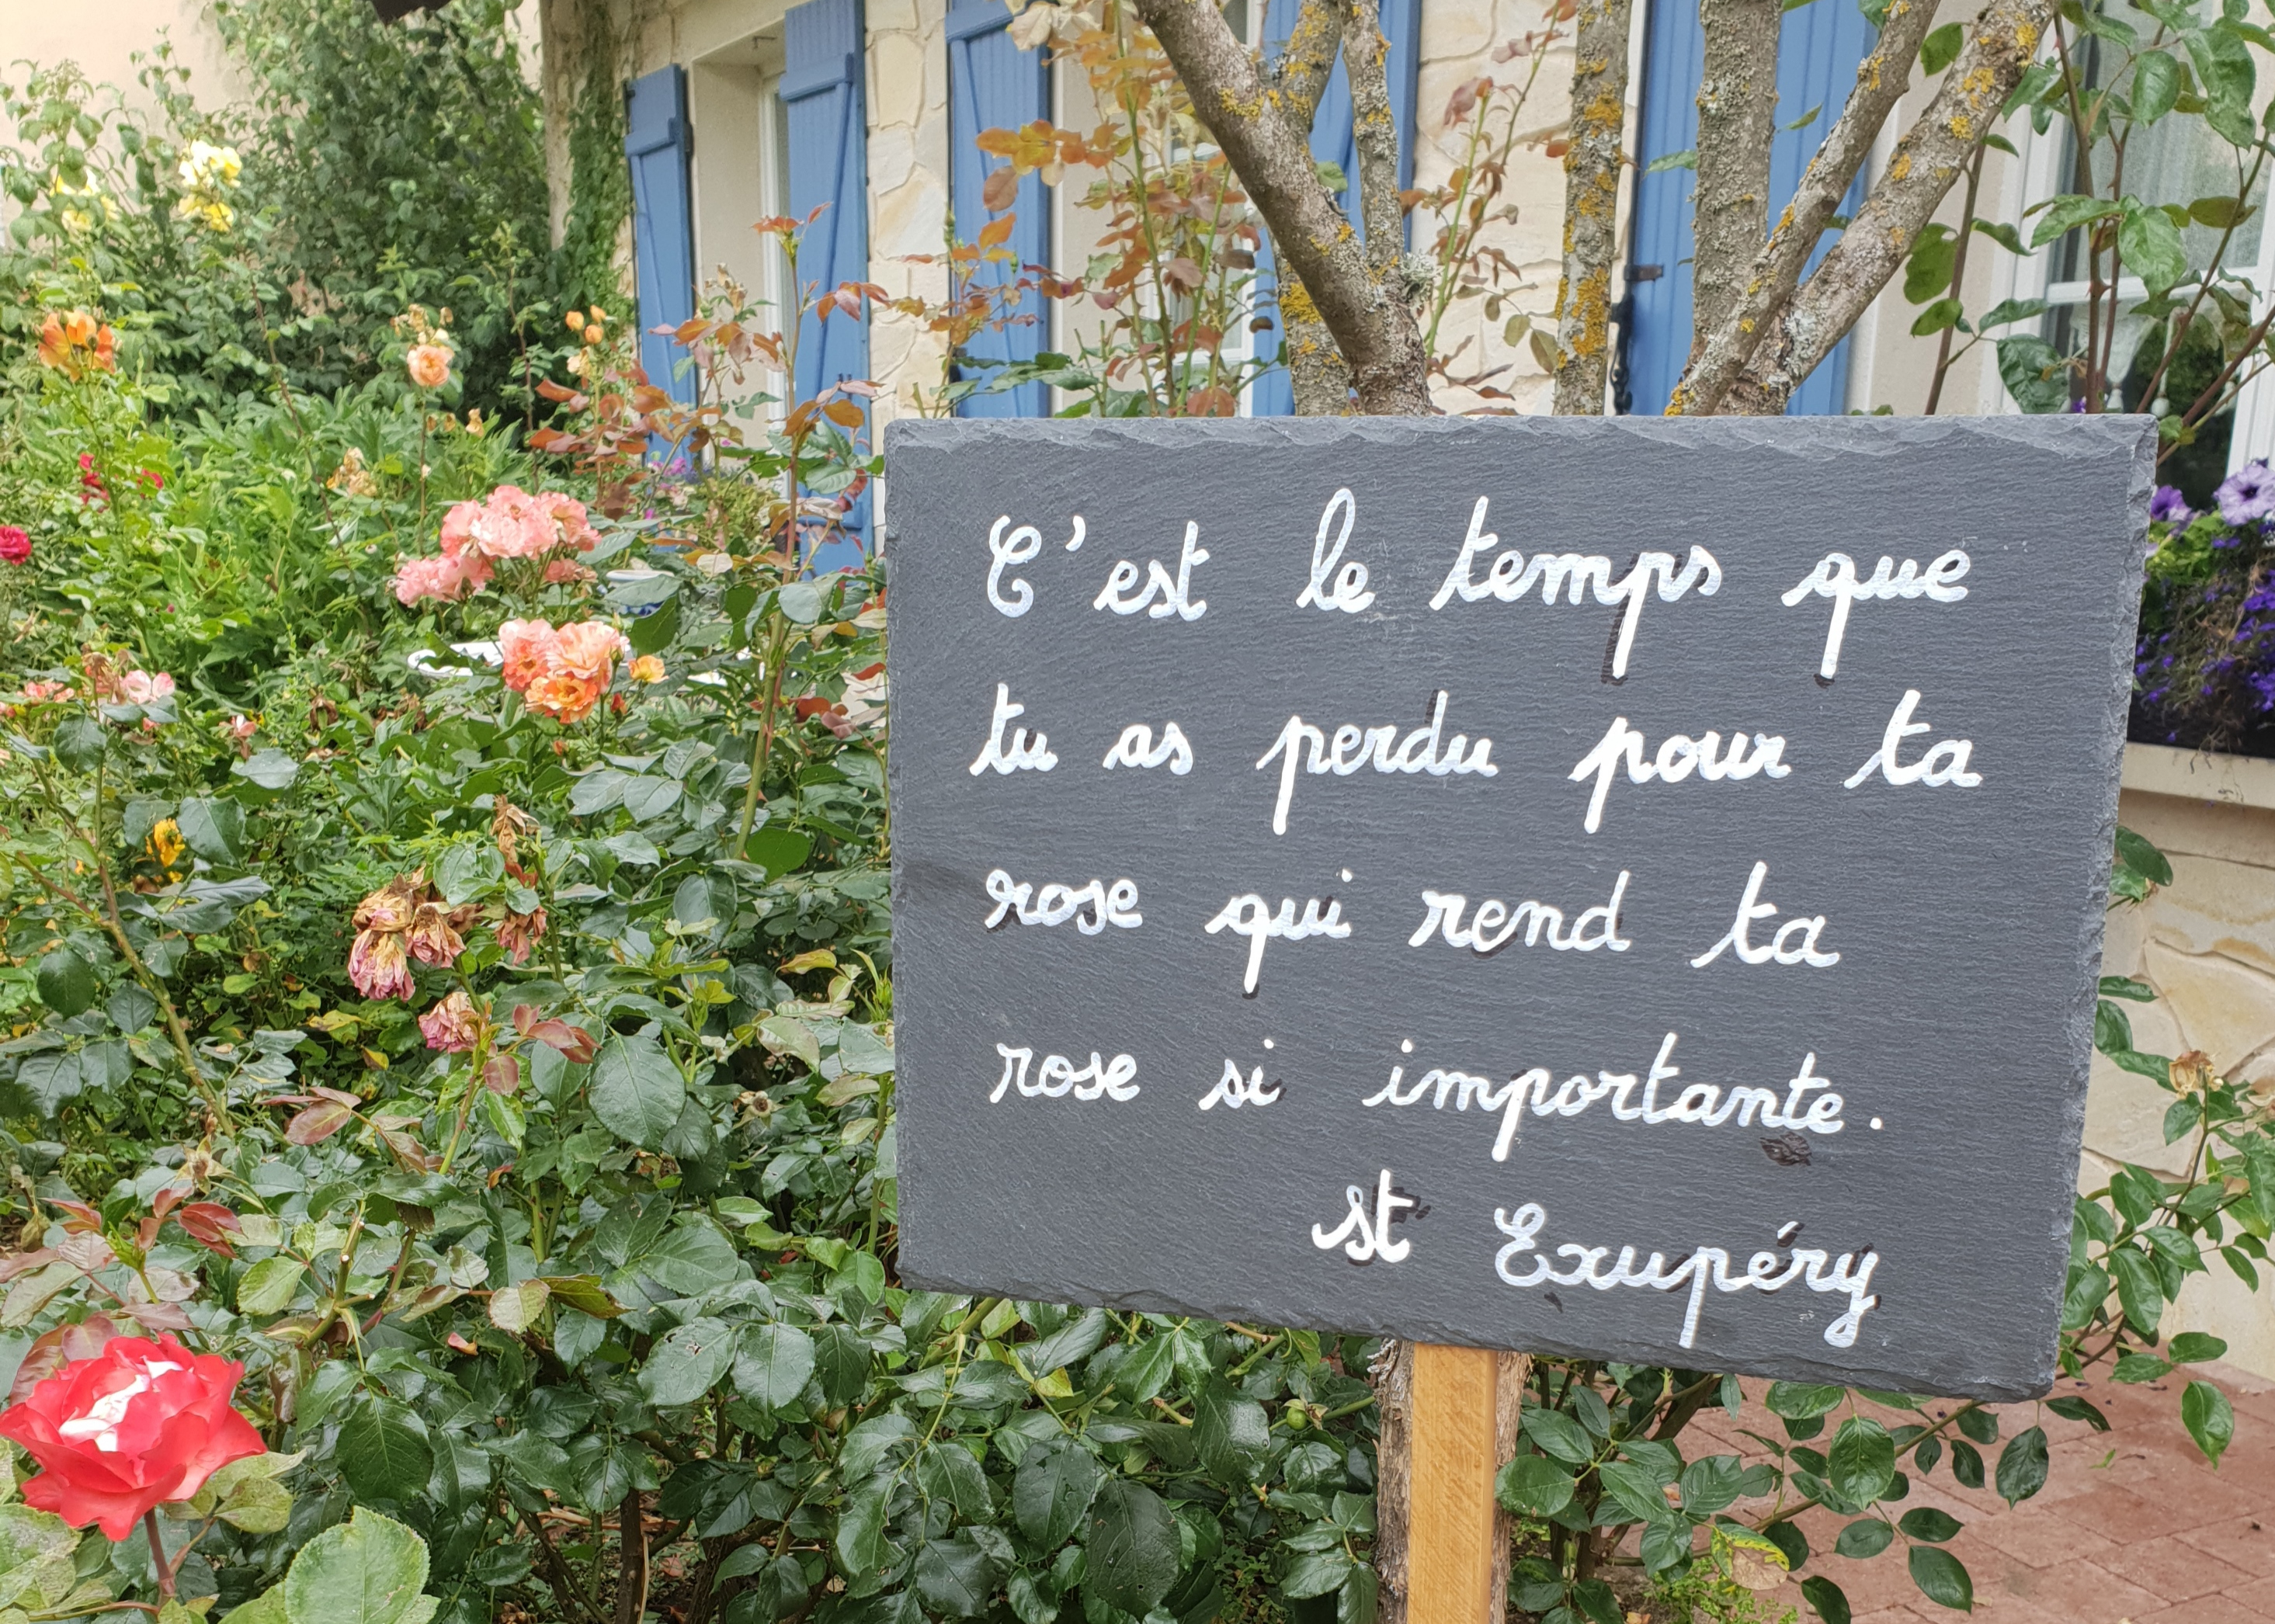 C'est le temps que
tu as perdu pour ta
rose qui rend ta
rose si importante.
St Exupéry